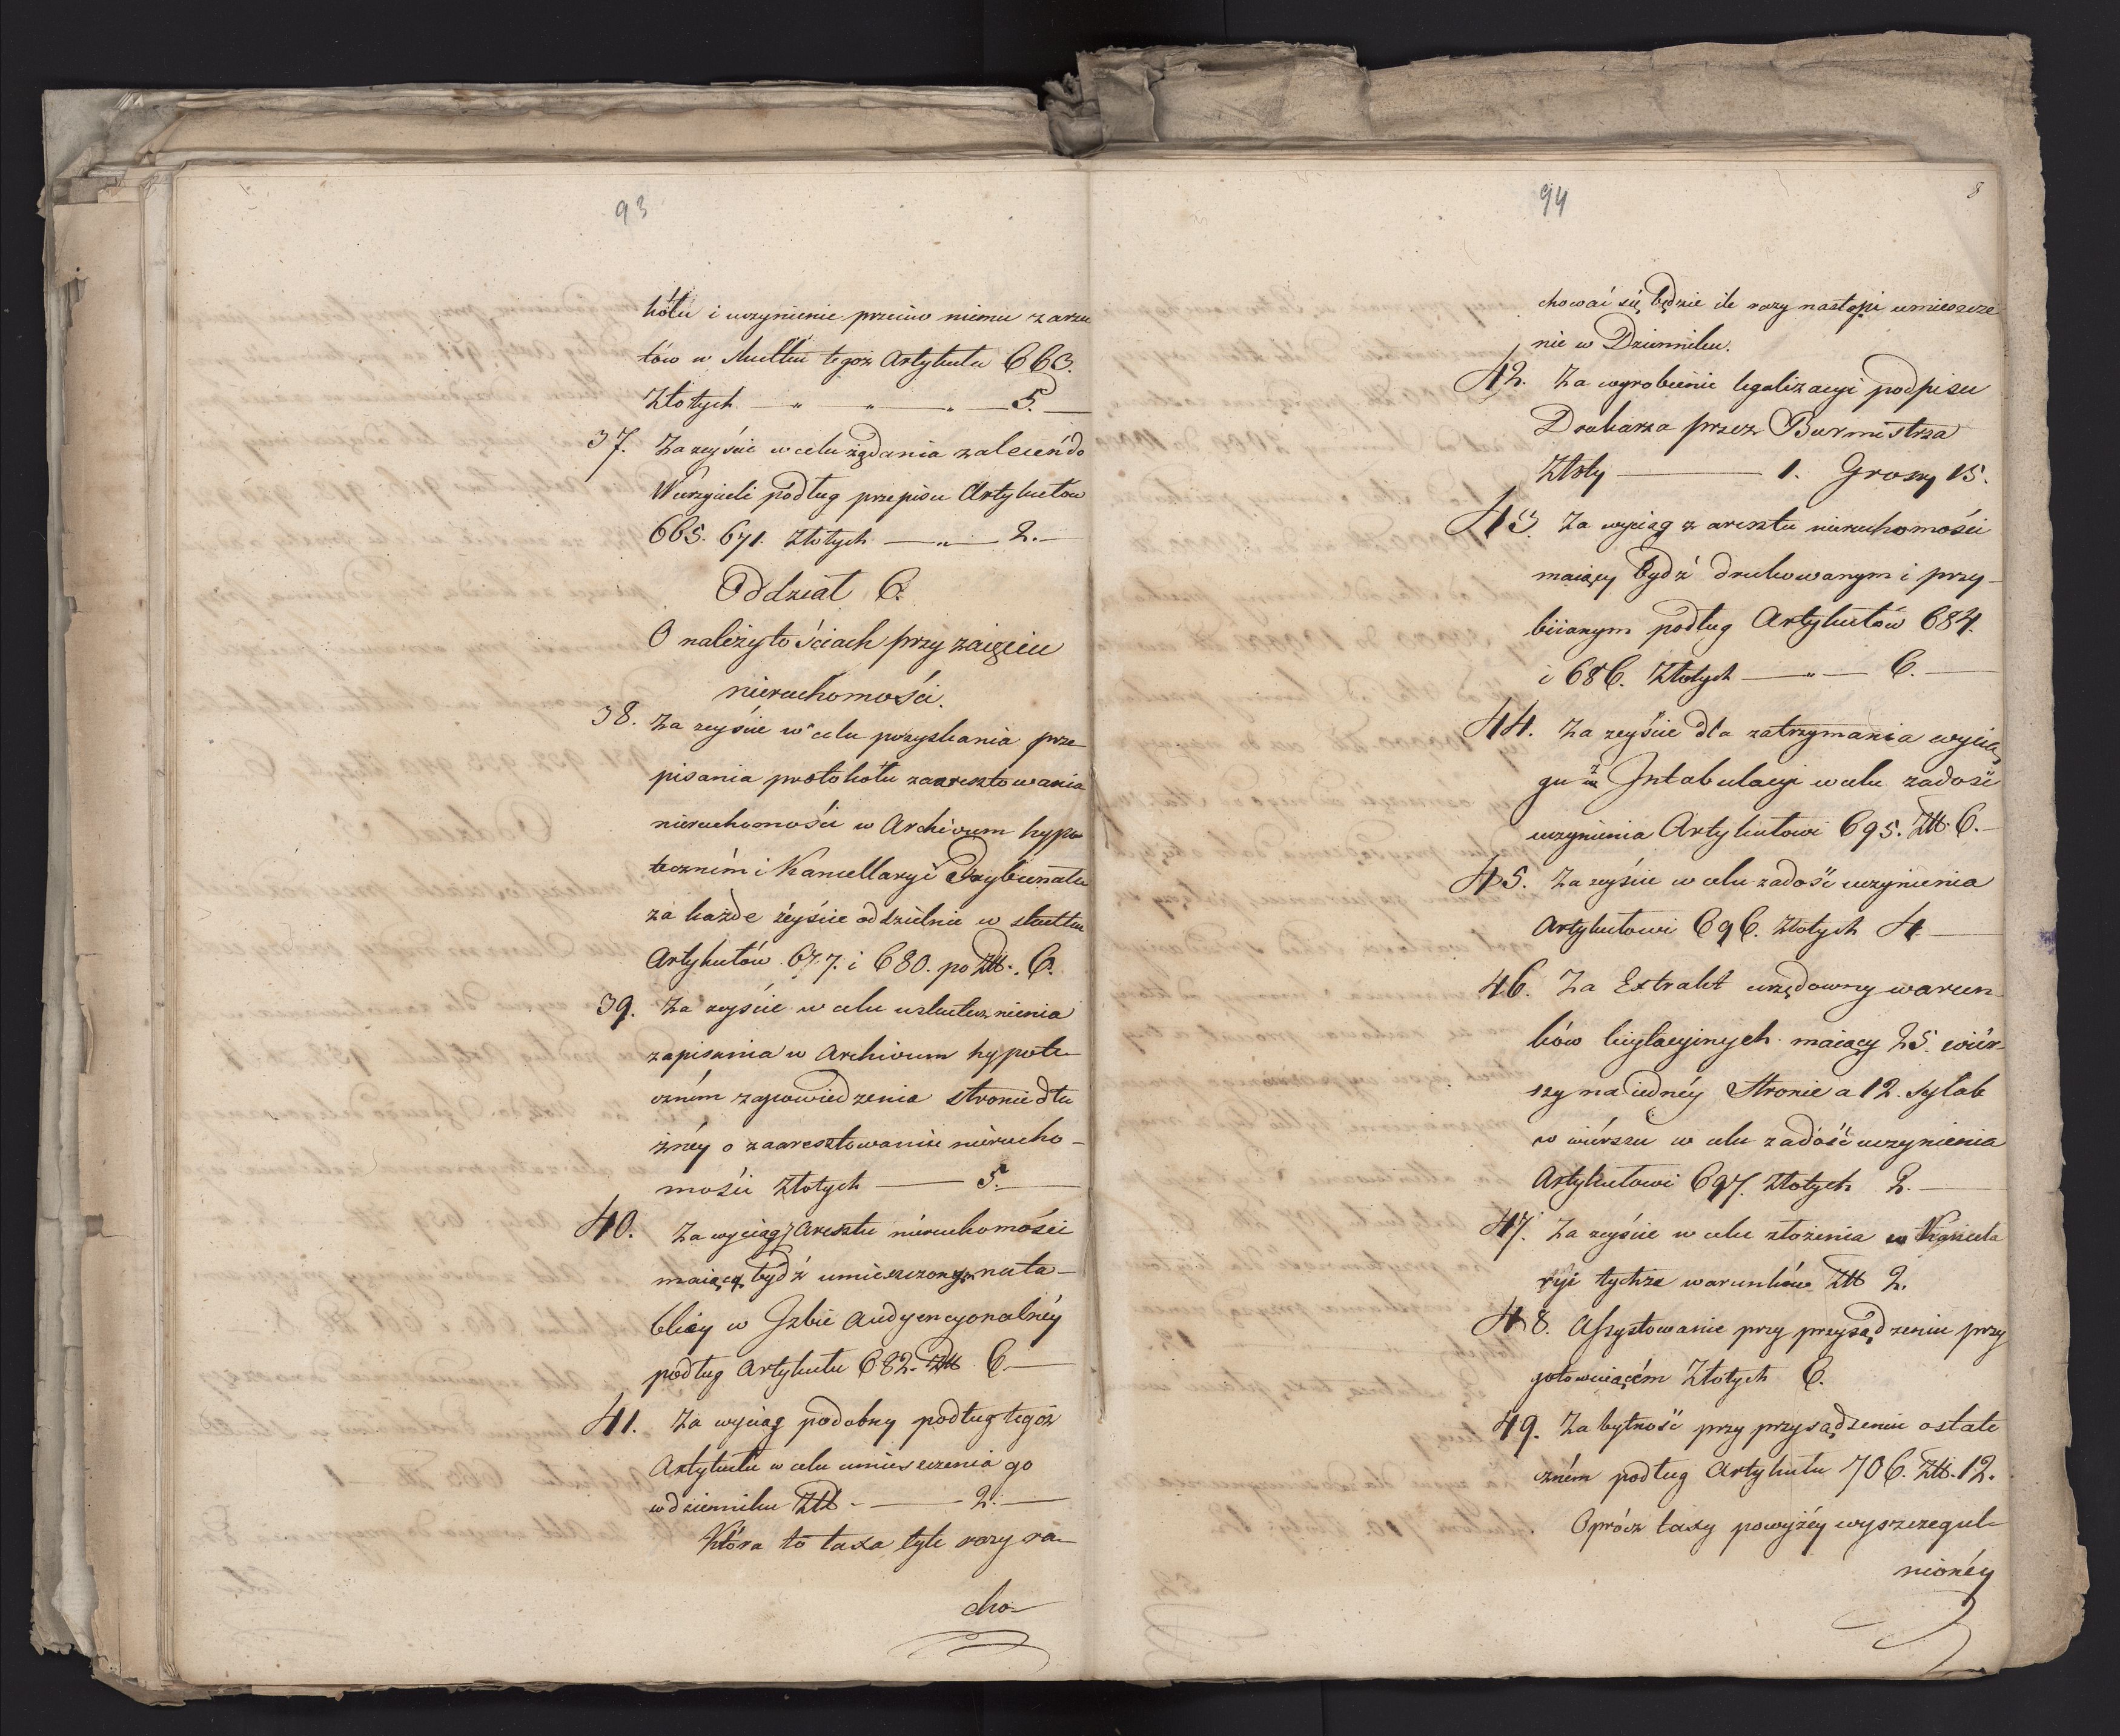 93
kółu i uczynienie przeciw niemu zarzu
tów w skutku tegoż Artykułu 663.
Złotych — " — " — " — 5. —
37. Za zeyście w celu żądania zaleceń do
Wierzycieli podług przepisu Artykułów
665. 671. Złotych — " — 2. —
Oddział 6.
O należytościach przy zaięciu
nieruchomości.
38. Za zeyście w celu pozyskania prze
pisania protokółu zaaresztowania
nieruchomości w Archivum hypo
tecznem i Kancellaryi Trybunału
za każde zeyście oddzielnie w skutku
Artykułów 677. i 680. po Złł. 6.
39. Za zeyście w celu uskutecznienia
zapisania w Archivum hypote-
cznem zapowiedzenia stronie dłu
żney o zaaresztowanie nierucho-
mości Złotych — 5. —
40. Za wyciąg z Aresztu nieruchomości
maiący bydź umieszczonym na ta-
blicy w Izbie Audyencyonalnéy
podług Artykułu 682. Złł 6. —
41. Za wyciąg podobny podług tegoż
Artykułu w celu umieszczenia go
w dzienniku Złł - — 2. —
Która to taxa tyle razy ra-
cho-
94
8
chować się będzie ile razy nastąpi umieszcze
nie w Dzienniku.
42. Za wyrobienie legalizacyi podpisu
Drukarza przez Burmistrza
Złoty — 1. Groszy 15.
43. Za wyciąg z aresztu nieruchomości
maiący bydź drukowanym i przy-
biianym podług Artykułów 684.
i 686. Złotych — " — 6. —
44. Za zeyście dla zatrzymania wycią
gu z Intabulacyi w celu zadość
uczynienia Artykułowi 695. Złł. 6. —
45. Za zeyście w celu zadość uczynienia
Artykułowi 696. Złotych 4. —
46. Za Extrakt urzędowny warun-
ków licytacyinych maiący 25. wiér-
szy na iednéy Stronie a 12. sylab
w wiérszu w celu zadość uczynienia
Artykułowi 697. Złotych 2. —
47. Za zeyście w celu złożenia w Kancela
ryi tychże warunków Złł 2.
48. Assystowanie przy przysądzeniu przy
gotowuiącém Złotych 6.
49. Za bytność przy przysądzeniu ostate
czném podług Artykułu 706. Złł. 12.
Oprócz taxy powyżéy wyszczegul-
nionéy